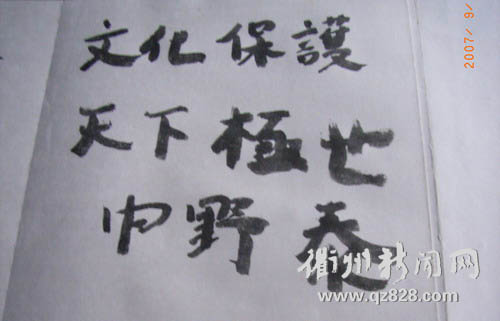 文化保護
天下極世
内野泰
衢州新闻网
www.qz828.com